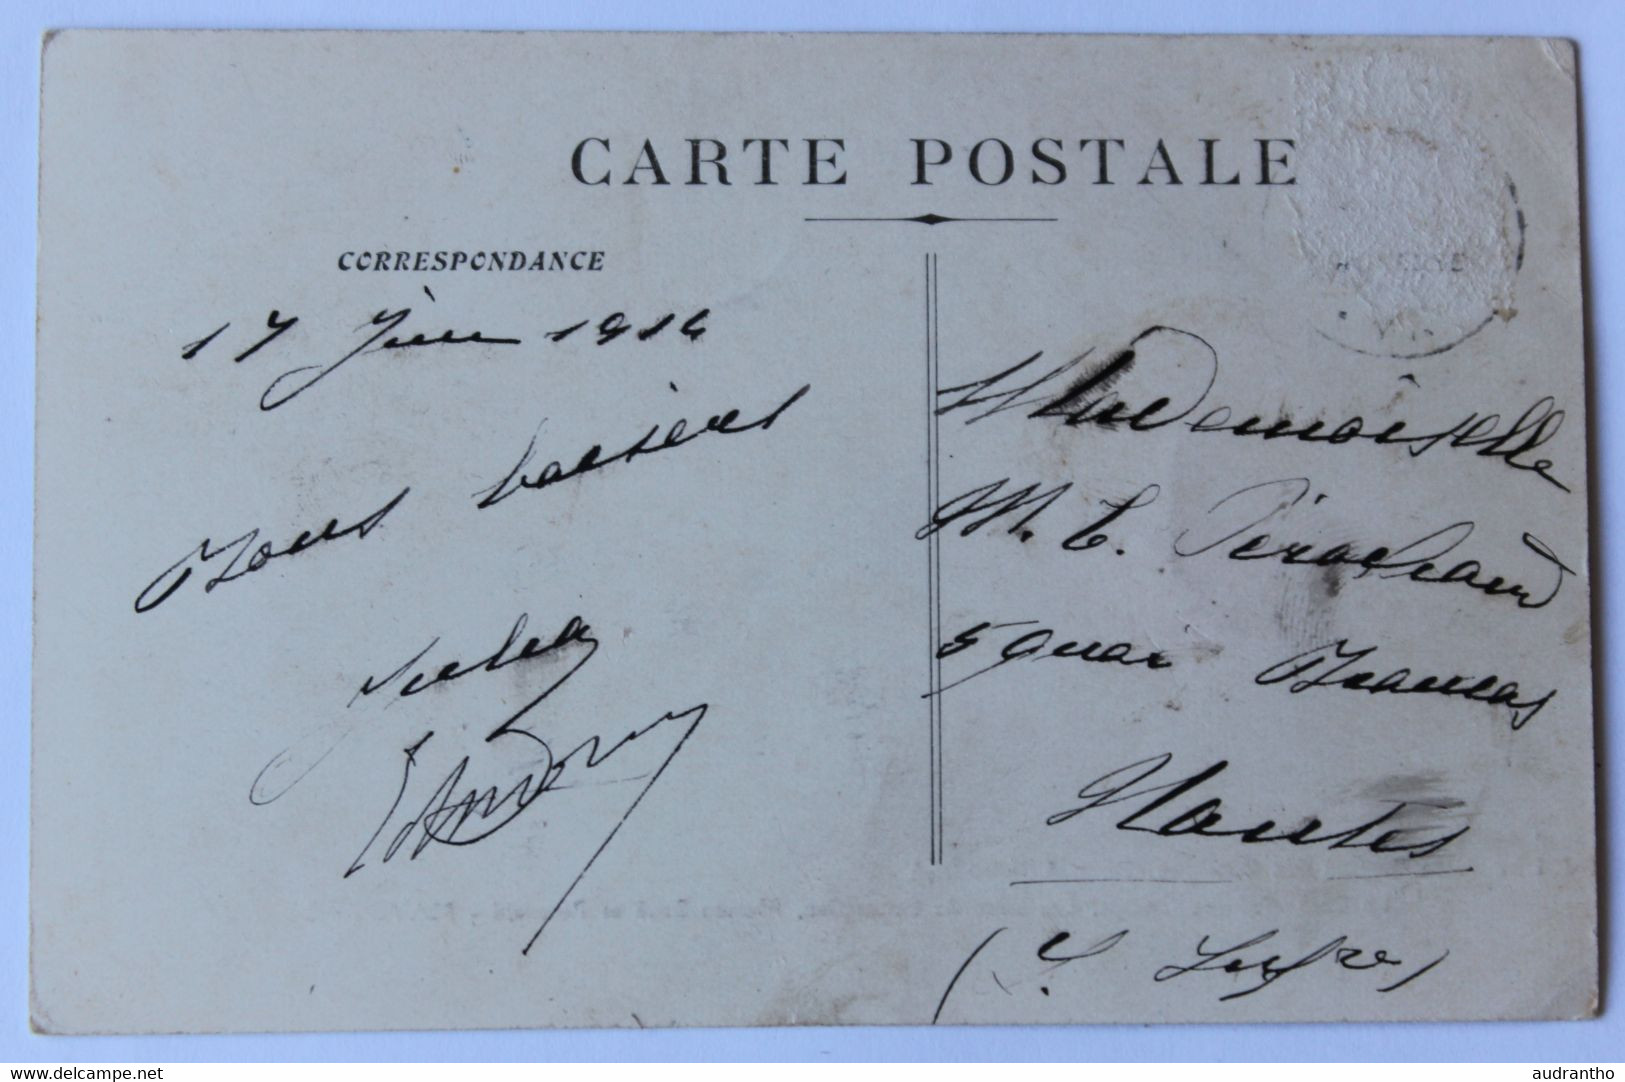 CARTE POSTALE
CORRESPONDANCE
17 Juin 1914
Bons baisers
Mademoiselle
M. C. Pérochaud
5 quai Brancas
Nantes
(L. Infre)
www.delcampe.net
audrantho